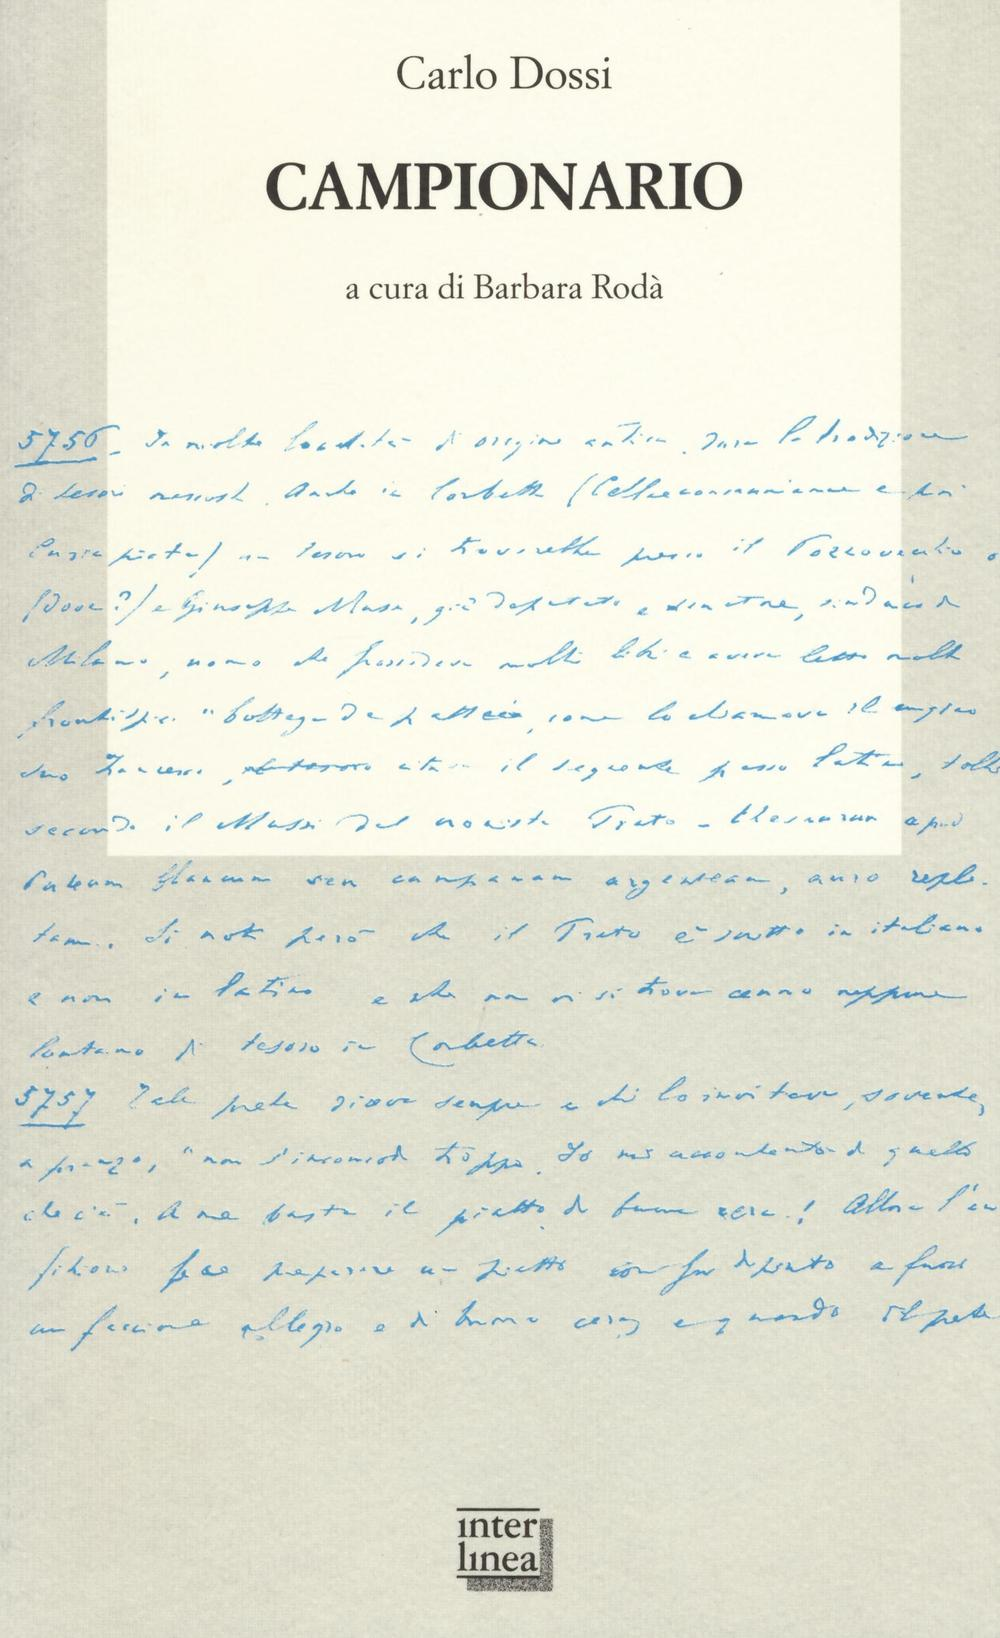 Carlo Dossi
CAMPIONARIO
a cura di Barbara Rodà
5756. In molte località di origine antica dura la tradizione
di tesori nascosti. Anche in Corbetta (
) un tesoro si troverebbe presso il Pozzovecchio
(dove?) e Giuseppe Mussi, già deputato e senatore, sindaco di
Milano, uomo che possedeva molti libri e aveva letto molti
frontispizi "bottega da , come lo chiamava il
suo , cita il seguente passo latino,
secondo il Mussi dal cronista Trato - thesaurum apud
seu campanam argenteam, auro reple-
tam. Si noti però che il Trato è scritto in italiano
e non in latino e che non vi si trova cenno neppure
lontano di tesoro in Corbetta
5757 Tale prete diceva sempre a chi lo invitava, sovente,
a pranzo, "non s'incomodi troppo. Io mi accontento di quello
che c'è. A me basta il piatto di buona cera! Allora l'an
fitrione fece preparare un piatto con su dipinto a fuoco
un faccione allegro e di buona cera, e quando il prete
inter
linea